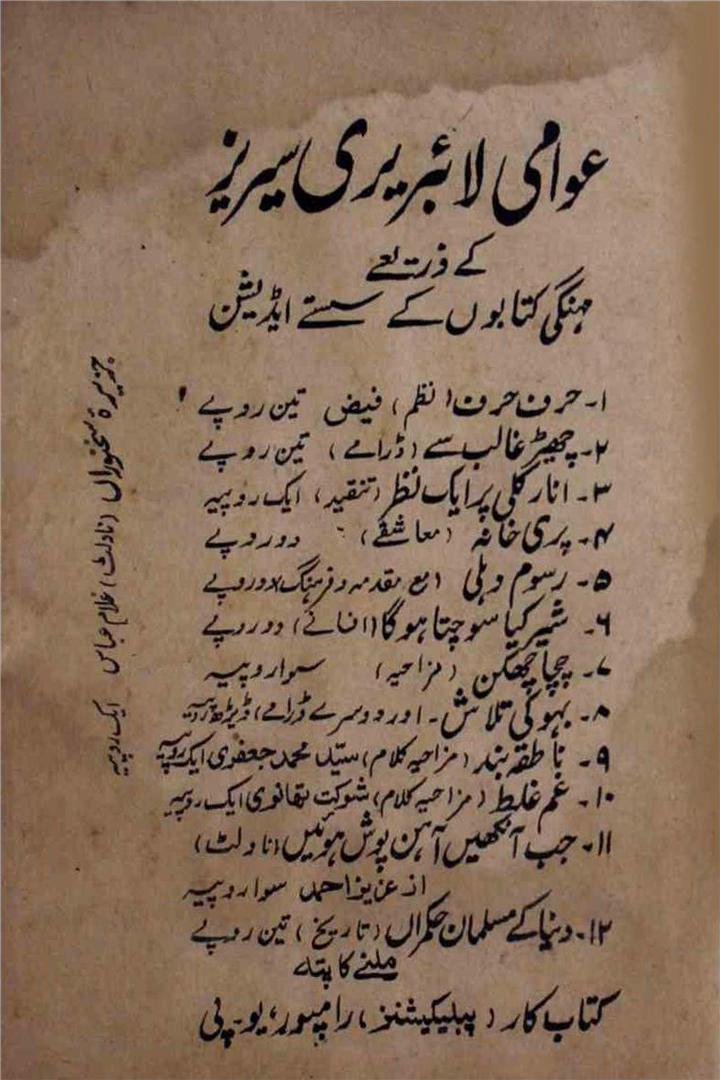 عوامی لائبریری سیریز
کے ذریعے
مہنگی کتابوں کے سستے ایڈیشن
۱۔ حرف حرف (نظم) فیض تین روپے
۲۔ چھیڑ غالب سے (ڈرامے) تین روپے
۳۔ انار کلی پر ایک نظر (تنقید) ایک روپیہ
۴۔ پری خانہ (معاشقے) دو روپے
۵۔ رسوم دہلی (مع مقدمہ و فرہنگ) دو روپے
۶۔ شمیر کیا سوچتا ہوگا (افسانے) دو روپے
۷۔ چچا چھکن (مزاحیہ) سوا روپیہ
۸۔ بہو کی تلاش۔ اور دوسرے ڈرامے) ڈیڑھ روپیہ
۹۔ ناطقہ بند (مزاحیہ کلام) سید محمد جعفری ایک روپیہ
۱۰۔ غم غلط (مزاحیہ کلام) شوکت تھانوی ایک روپیہ
۱۱۔ جب آنکھیں آہن پوش ہوئیں (ناولٹ)
از عزیز احمد سوا روپیہ
۱۲۔ دنیا کے مسلمان حکمراں (تاریخ) تین روپے
ملنے کا پتہ
کتاب کار (پبلیکیشنز) رامپور، یو۔پی
جزیرۂ سخنوراں (ناولٹ) غلام عباس ایک روپیہ